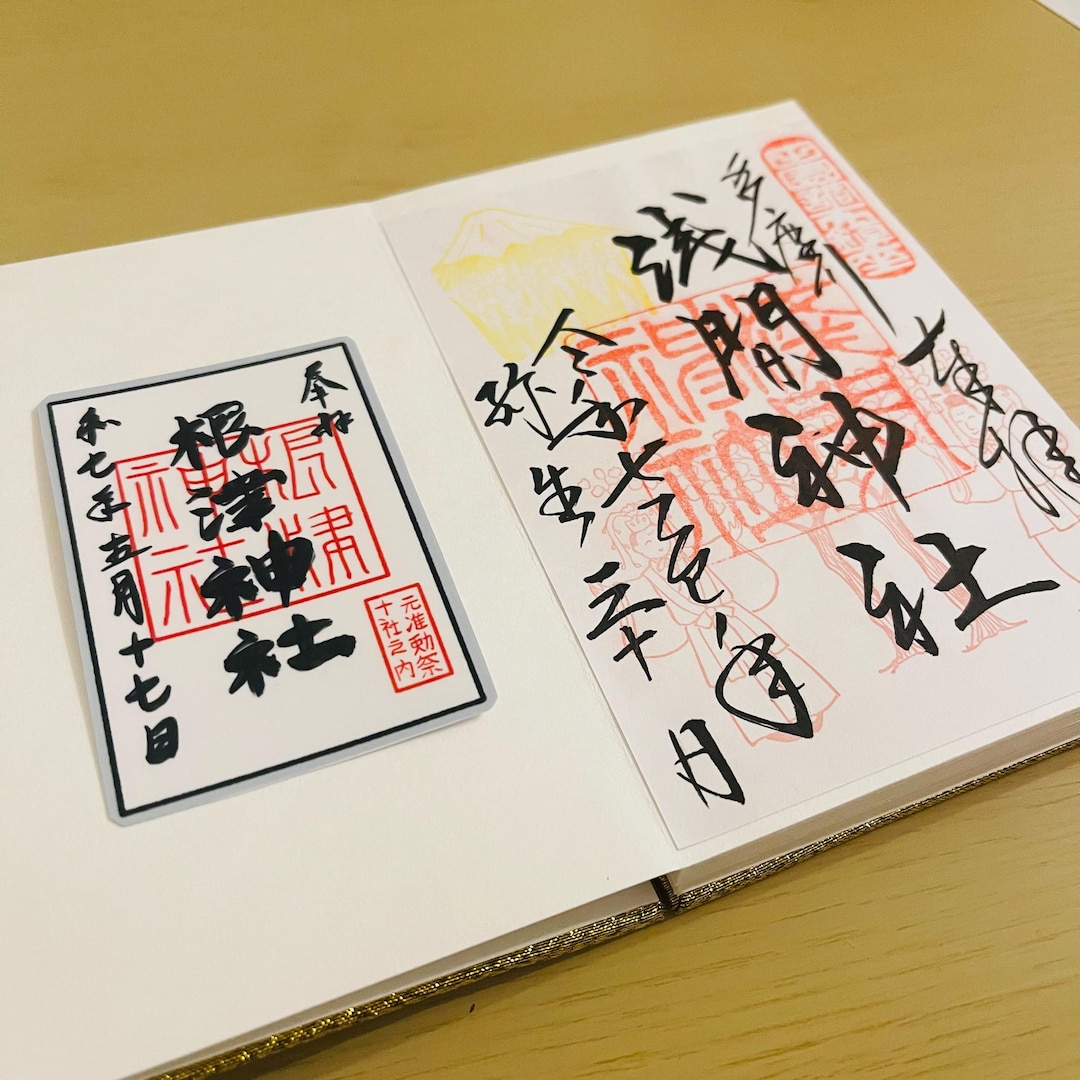 奉拝
多摩川
浅間神社
令和七乙巳年
弥生三十日
奉拝
根津神社
根津神社
元准勅祭
十社之内
和七年五月十七日